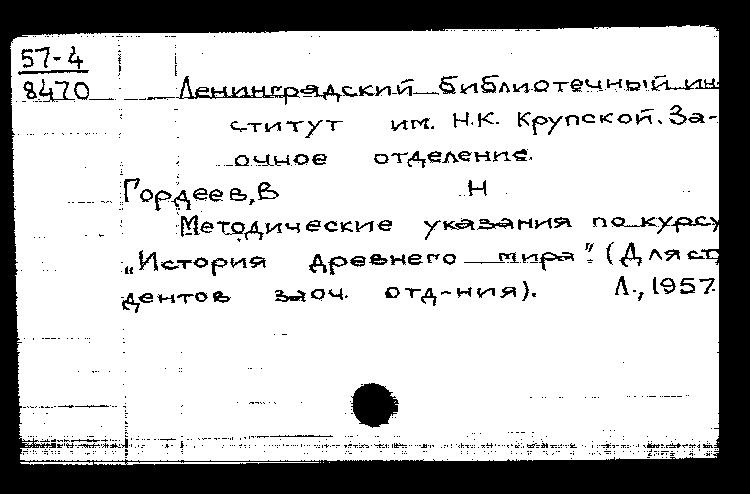 57-4
8470
Ленинградский библиотечный ин-
ститут им. Н.К. Крупской. За-
очное отделение.
Гордеев, В Н
Методические указания по курсу
„История древнего мира". (Для сту
дентов заоч. отд-ния). Л., 1957.